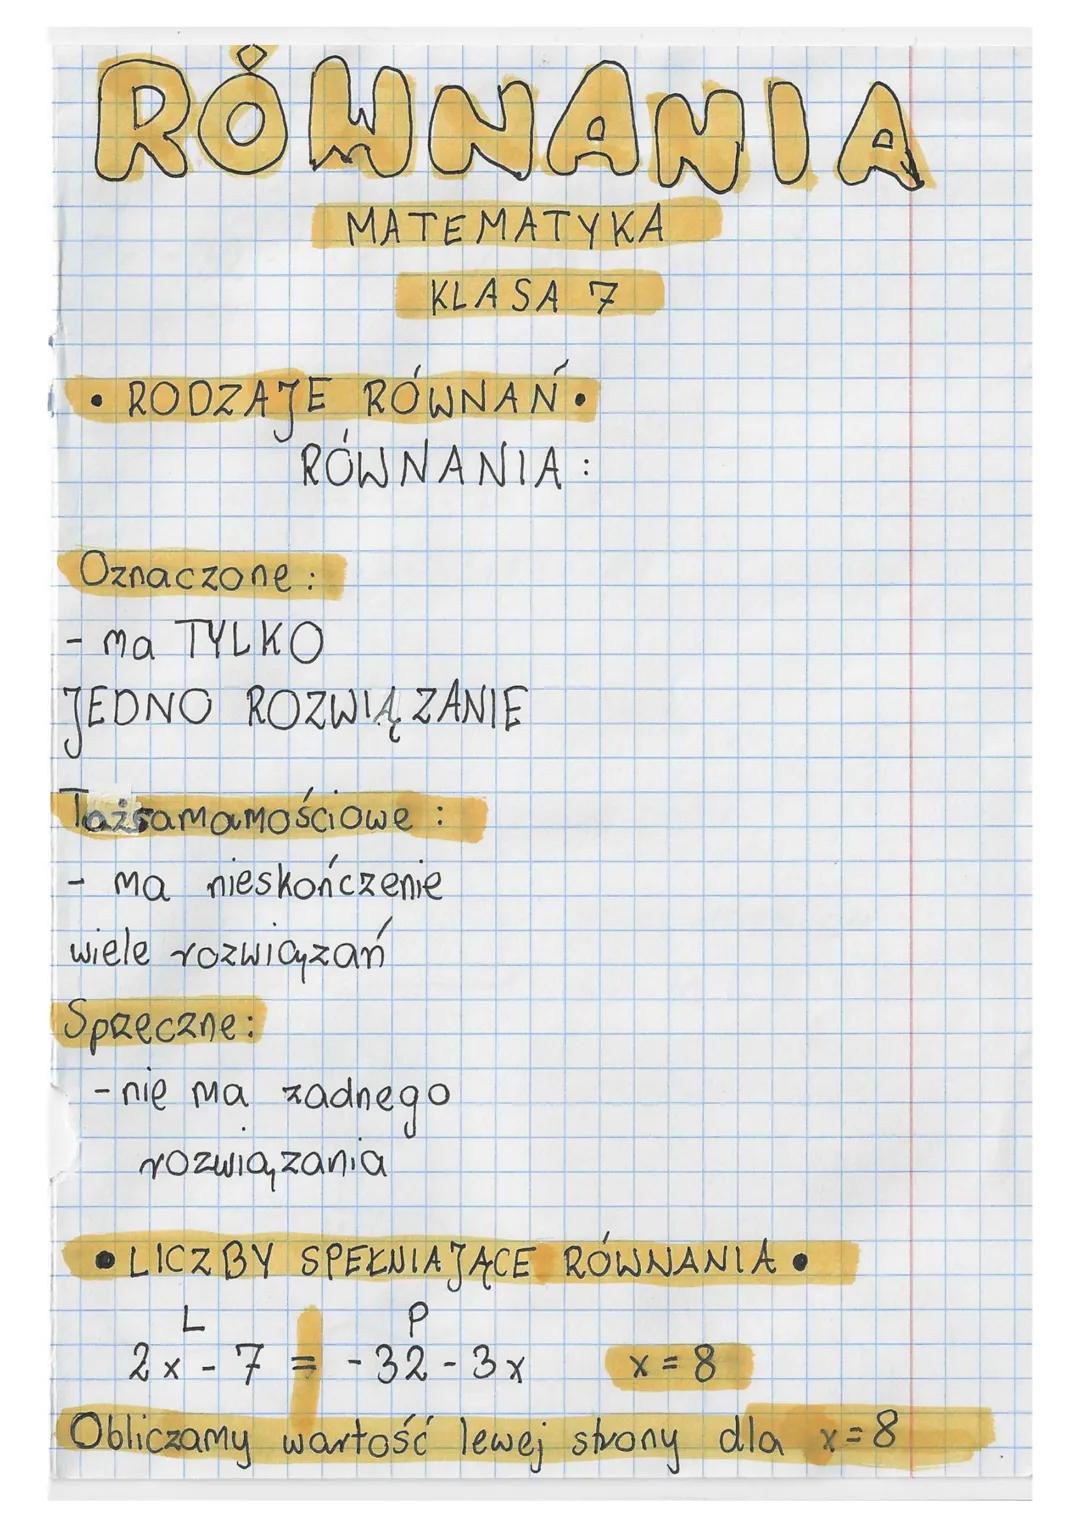 RÓWNANIA
MATEMATYKA
KLASA 7
• RODZAJE RÓWNAŃ •
RÓWNANIA:
Oznaczone:
- ma TYLKO
JEDNO ROZWIĄZANIE
Tożsamamościowe:
- ma nieskończenie
wiele rozwiązań
Sprzeczne:
- nie ma żadnego
rozwiązania
• LICZBY SPEŁNIAJĄCE RÓWNANIA •
L P
2x - 7 = -32 - 3x x = 8
Obliczamy wartość lewej strony dla x = 8